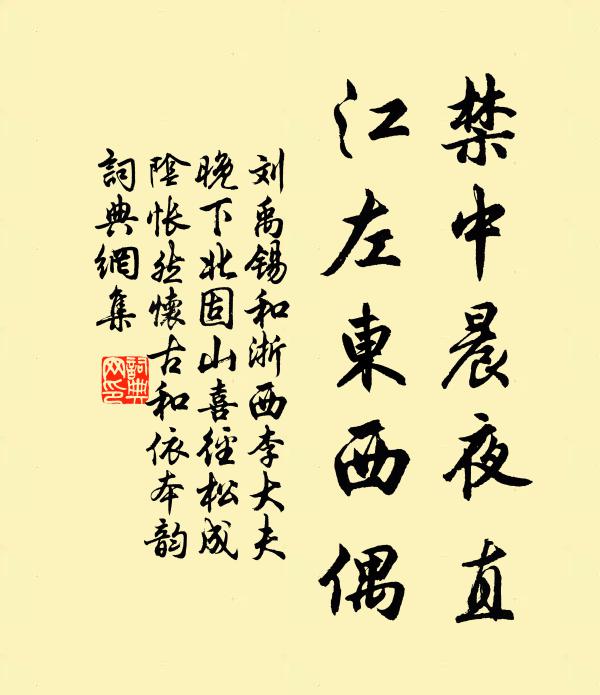 禁中晨夜直
江左東西偶
刘禹锡和浙西李大夫
晚下北固山喜徑松成
陰怅然懷古和依本韵
詞典網集
詞典網印